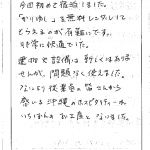 今回初めて宿泊しました。
「かりゆし」を無料レンタルして
もらえるのが有難いです。
非常に快適でした。
建物や設備は新しくはありま
せんが、問題なく使えました。
なにより従業員の皆さんから
感じる沖縄のホスピタリティーが
いちばんのお土産となりました。